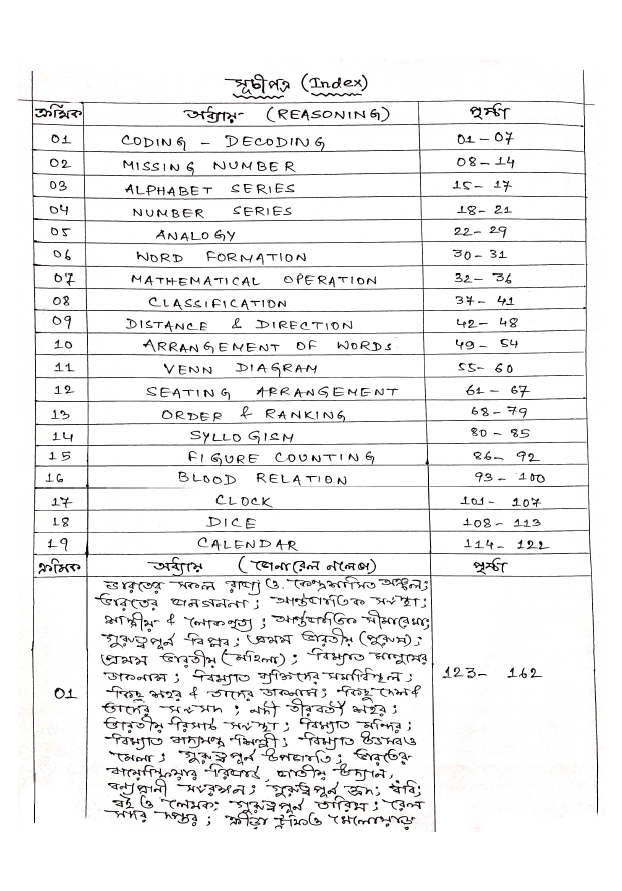 সূচীপত্র (Index)
ক্রমিক অধ্যায় (REASONING) পৃষ্ঠা
01 CODING - DECODING 01 - 07
02 MISSING NUMBER 08 - 14
03 ALPHABET SERIES 15 - 17
04 NUMBER SERIES 18 - 21
05 ANALOGY 22 - 29
06 WORD FORMATION 30 - 31
07 MATHEMATICAL OPERATION 32 - 36
08 CLASSIFICATION 37 - 41
09 DISTANCE & DIRECTION 42 - 48
10 ARRANGEMENT OF WORDS 49 - 54
11 VENN DIAGRAM 55 - 60
12 SEATING ARRANGEMENT 61 - 67
13 ORDER & RANKING 68 - 79
14 SYLLOGISM 80 - 85
15 FIGURE COUNTING 86 - 92
16 BLOOD RELATION 93 - 100
17 CLOCK 101 - 107
18 DICE 108 - 113
19 CALENDAR 114 - 122
ক্রমিক অধ্যায় (জেনারেল নলেজ) পৃষ্ঠা
ভারতের সকল রাজ্য ও কেন্দ্রশাসিত অঞ্চল;
ভারতের জনগননা; আন্তর্জাতিক সংস্থা;
শাস্ত্রীয় & লোকনৃত্য; আন্তর্জাতিক সীমারেখা;
গুরুত্বপূর্ন বিপ্লব; প্রথম ভারতীয় (পুরুষ);
প্রথম ভারতীয় (মহিলা); বিখ্যাত মানুষের
ডাকনাম; বিখ্যাত ব্যক্তিদের সমাধিস্থল;
01 কিছু শহর & তাদের ডাকনাম; কিছু দেশ & 123 - 162
তাদের সংসদ; নদী তীরবর্তী শহর;
ভারতীয় রিসার্চ সংস্থা; বিখ্যাত মন্দির;
বিখ্যাত বাদ্যযন্ত্র শিল্পী; বিখ্যাত উৎসব ও
মেলা; গুরুত্বপূর্ন উপজাতি; ভারতের
বায়োস্ফিয়ার রিজার্ভ, জাতীয় উদ্যান,
বন্যপ্রানী সংরক্ষন; গুরুত্বপূর্ন
বই ও লেখক; গুরুত্বপূর্ন তারিখ; রেল
সদর দপ্তর; ক্রীড়া ট্রফি ও খেলোয়াড়